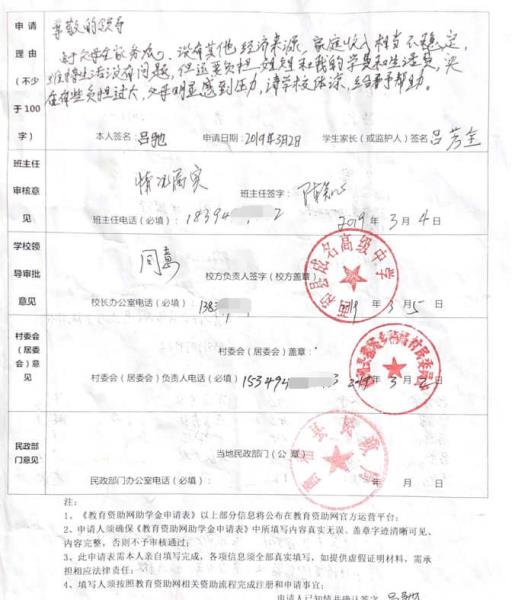 申请理由（不少于100字）
尊敬的领导
由于父母在家务农，没有其他经济来源，家庭收入相当不稳定，
维持生活没有问题，但还要负担姐姐和我的学费和生活费，实
在有些负担过大，父母明显感到压力，请学校体谅，给予帮助。
本人签名：吕驰 申请日期：2019年3月2日 学生家长（或监护人）签名：吕芳全
班主任审核意见
情况属实
班主任签字：
班主任电话（必填）：18394 2 2019年3月4日
学校领导审批意见
同意
校方负责人签字（校方盖章）
县成名高级中学
校长办公室电话（必填）：138 2019年3月5日
村委会（居委会）意见
村委会（居委会）盖章：
村委会（居委会）负责人电话（必填）153494 3 2019年3月2日
民政部门意见
当地民政部门（公章）
县民政局
民政部门办公室电话（必填）： 年 月 日
注：
1、《教育资助网助学金申请表》以上部分信息将公布在教育资助网官方运营平台；
2、申请人须确保《教育资助网助学金申请表》中所填写内容真实无误、盖章字迹清晰可见、
内容完整，否则不予审核通过；
3、此申请表需本人亲自填写完成，各项信息须全部真实填写，如提供虚假证明材料，需承
担相应法律责任；
4、填写人须按照教育资助网相关资助流程完成注册和申请事宜；
申请人已知情并确认签字 吕驰